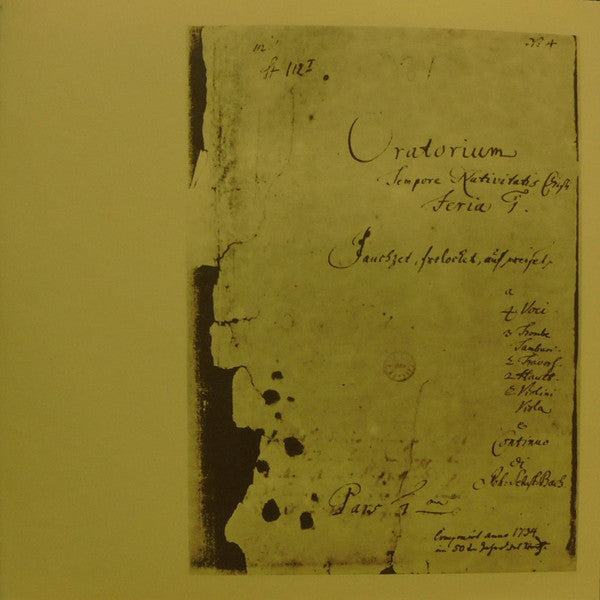 No 4
112
St 112 I
Oratorium
Tempore Nativitatis Christi
Feria 1.
Jauchzet, frolocket, auf preiset,
a
4 Voci
3 Trombe
Tamburi.
2 Travers.
2 Hautb.
2 Violini
Viola
e
Continuo
di
Joh. Sebast. Bach
Pars 1
Componirt anno 1734
im 50